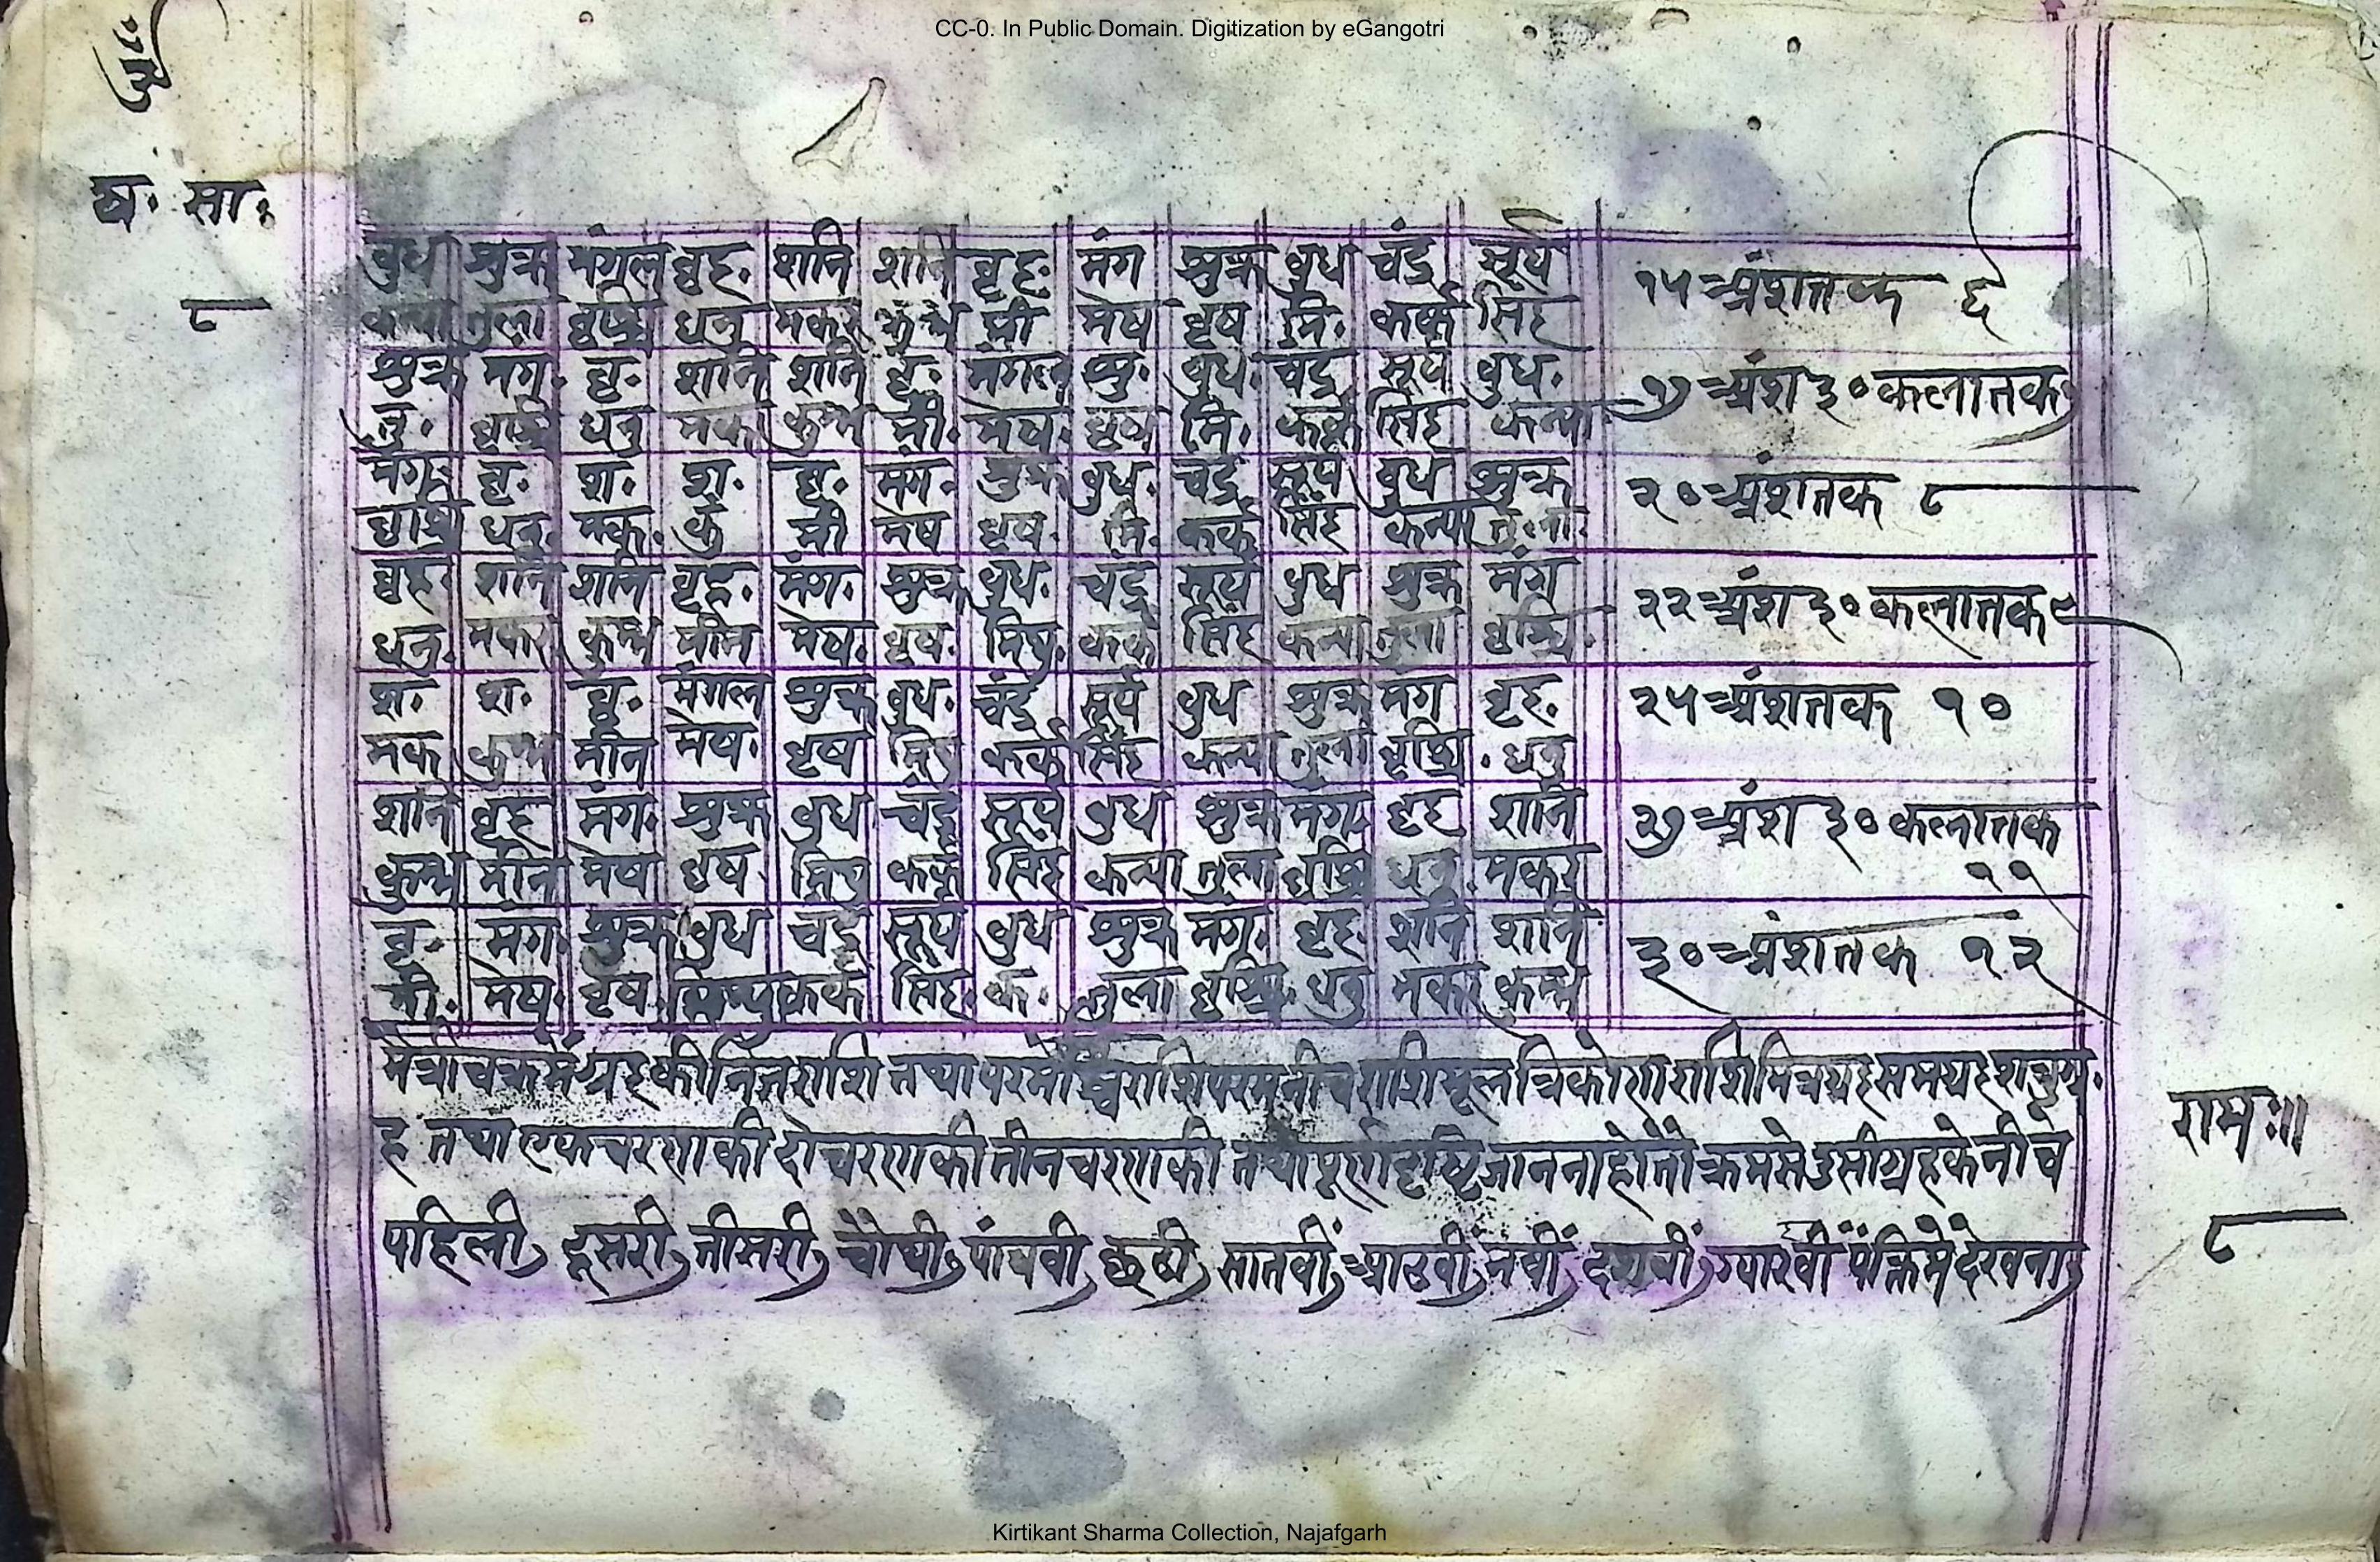 CC-0. In Public Domain. Digitization by eGangotri
ष. सा.
८
बुध शुक्र मंगल बृह. शनि शनि बृह. मंग शुक्र बुध चंद्र सूर्य १५ अंशतक ६
कन्या तुला बृश्चि धनु मकर कुम्भ मी मेष बृष मि. कर्क सिंह
शुक्र मंग. बृ. शनि शनि बृ. मंगल शु. बुध. चंद्र सूर्य बुध. १७ अंश ३० कलातक ७
तु. बृश्चि धनु मक कुम्भ मी. मेष. बृष मि. कर्क सिंह कन्या
मंग बृ. श. श. बृ. मंग. शुक्र बुध. चंद्र सूर्य बुध शुक्र २० अंशतक ८
बृश्चि धनु. मक. कुं मी मेष बृष. मि. कर्क सिंह कन्या तुला.
बृह. शनि शनि बृह. मंग. शुक्र बुध. चंद्र सूर्य बुध शुक्र मंग २२ अंश ३० कलातक ९
धनु. मकर. कुम्भ मीन मेष. बृष. मिथु. कर्क सिंह कन्या तुला बृश्चि.
श. श. बृ. मंगल शुक्र बुध. चंद्र सूर्य बुध शुक्र मंग बृह. २५ अंशतक १०
मक कुम्भ मीन मेष. बृष मिथु कर्क सिंह कन्या तुला बृश्चि. धनु
शनि बृह मंग. शुक्र बुध चंद्र सूर्य बुध शुक्र मंग बृह शनि २७ अंश ३० कलातक
कुम्भ मीन मेष बृष मिथु कर्क सिंह कन्या तुला बृश्चि धनु. मकर ११
बृ. मंग. शुक्र बुध चंद्र सूर्य बुध शुक्र मंग. बृह शनि शनि ३० अंशतक १२
मी. मेष. बृष. मिथु कर्क सिंह. क. तुला बृश्चि. धनु मकर कुम्भ
मैत्रीचक्रमें ग्रहकी निजराशि तथा परमोच्चराशि परमनीचराशि मूलत्रिकोणराशि मित्रग्रह समग्रह शत्रुग्र.
ह तथा एकचरणकी दोचरणकी तीनचरणकी तथा पूर्णदृष्टि जाननाहो तो क्रमसे उसी ग्रहके नीचे
पहिली, दूसरी, तीसरी, चौथी, पांचवी, छठी, सातवीं, आठवी, नवीं, दशवीं, ग्यारहवीं पंक्तिमें देखना,
रामः॥
८
Kirtikant Sharma Collection, Najafgarh